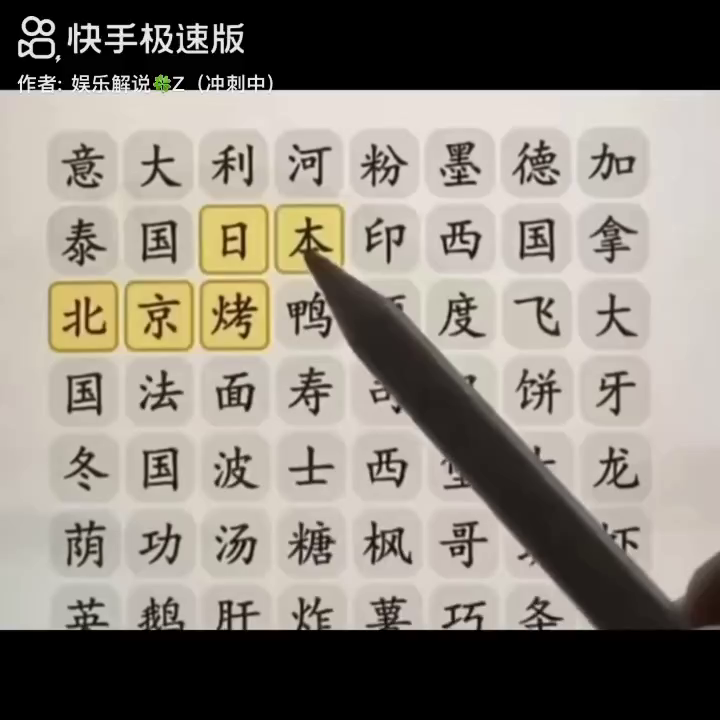 快手极速版
作者: 娱乐解说🍀Z（冲刺中）
意大利河粉墨德加
泰国日本印西国拿
北京烤鸭度飞大
国法面寿司饼牙
冬国波士西堡龙
荫功汤糖枫哥虾
英鹅肝炸薯巧条